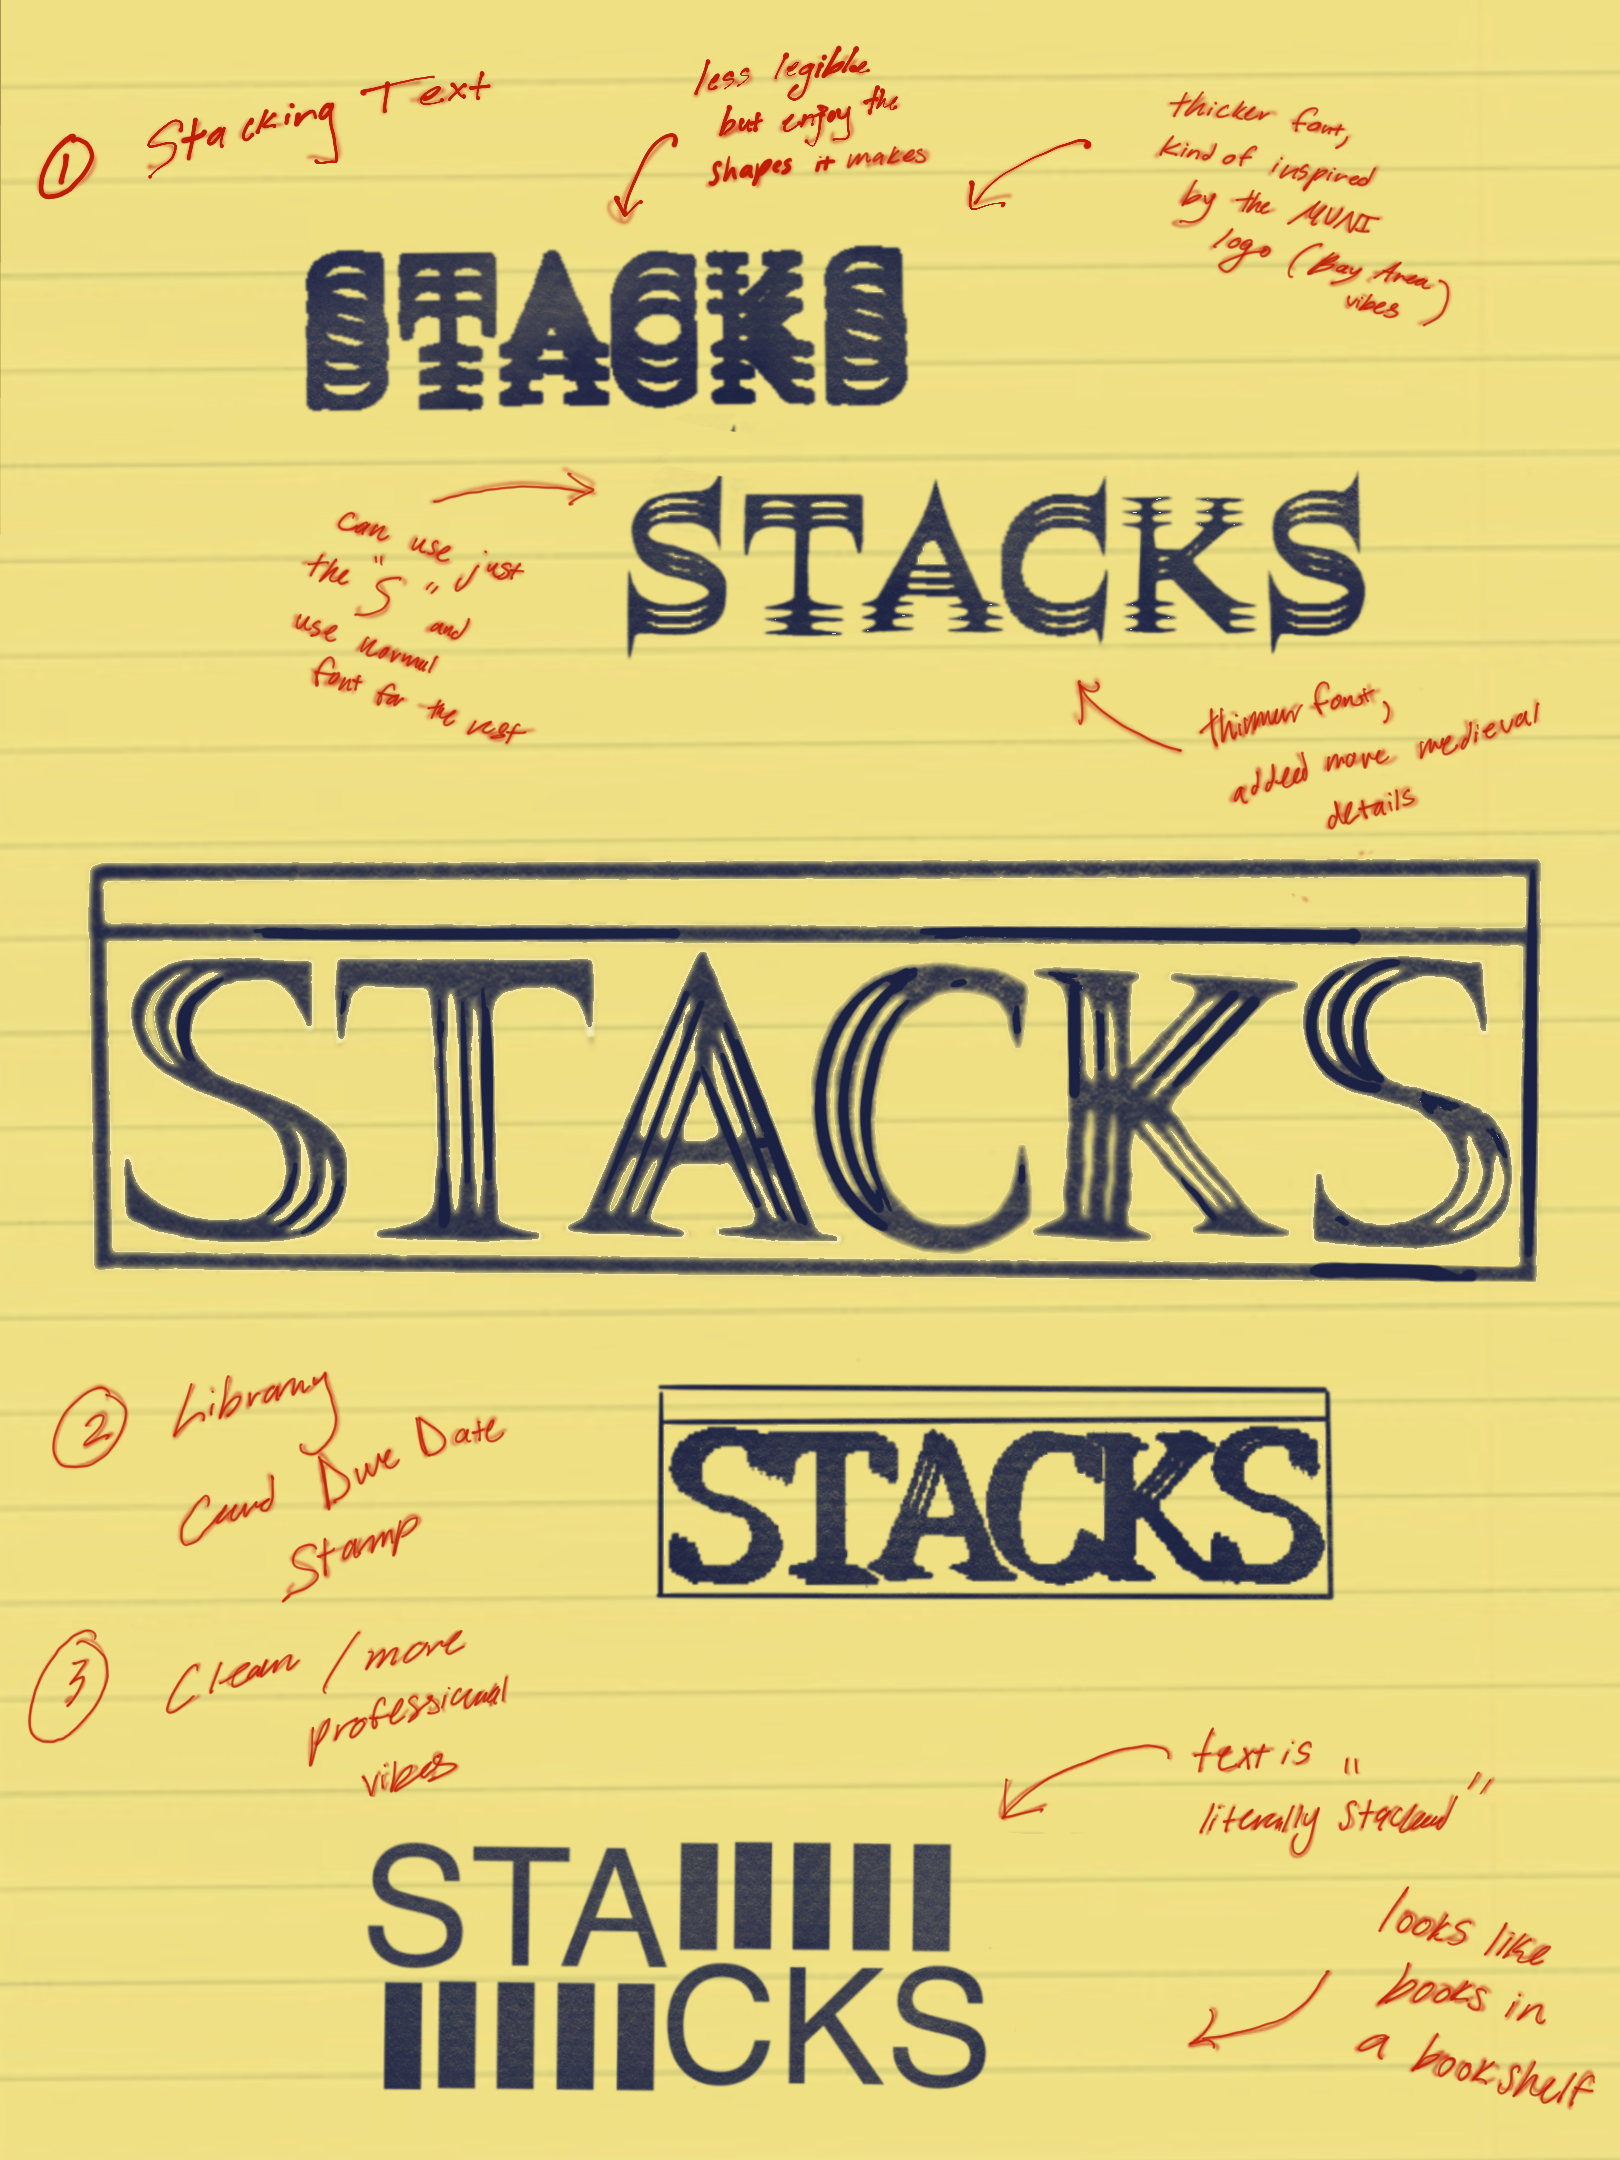 ① Stacking Text
less legible
but enjoy the
shapes it makes
thicker font,
kind of inspired
by the MUNI
logo (Bay Area
vibes)
STACKS
can use just
the "S" and
use normal
font for the rest
STACKS
thinner font,
added more medieval
details
STACKS
② Library
Card Due Date
Stamp
STACKS
③ Clean / more
professional
vibes
text is "
literally stacked"
STA
CKS
looks like
books in
a bookshelf